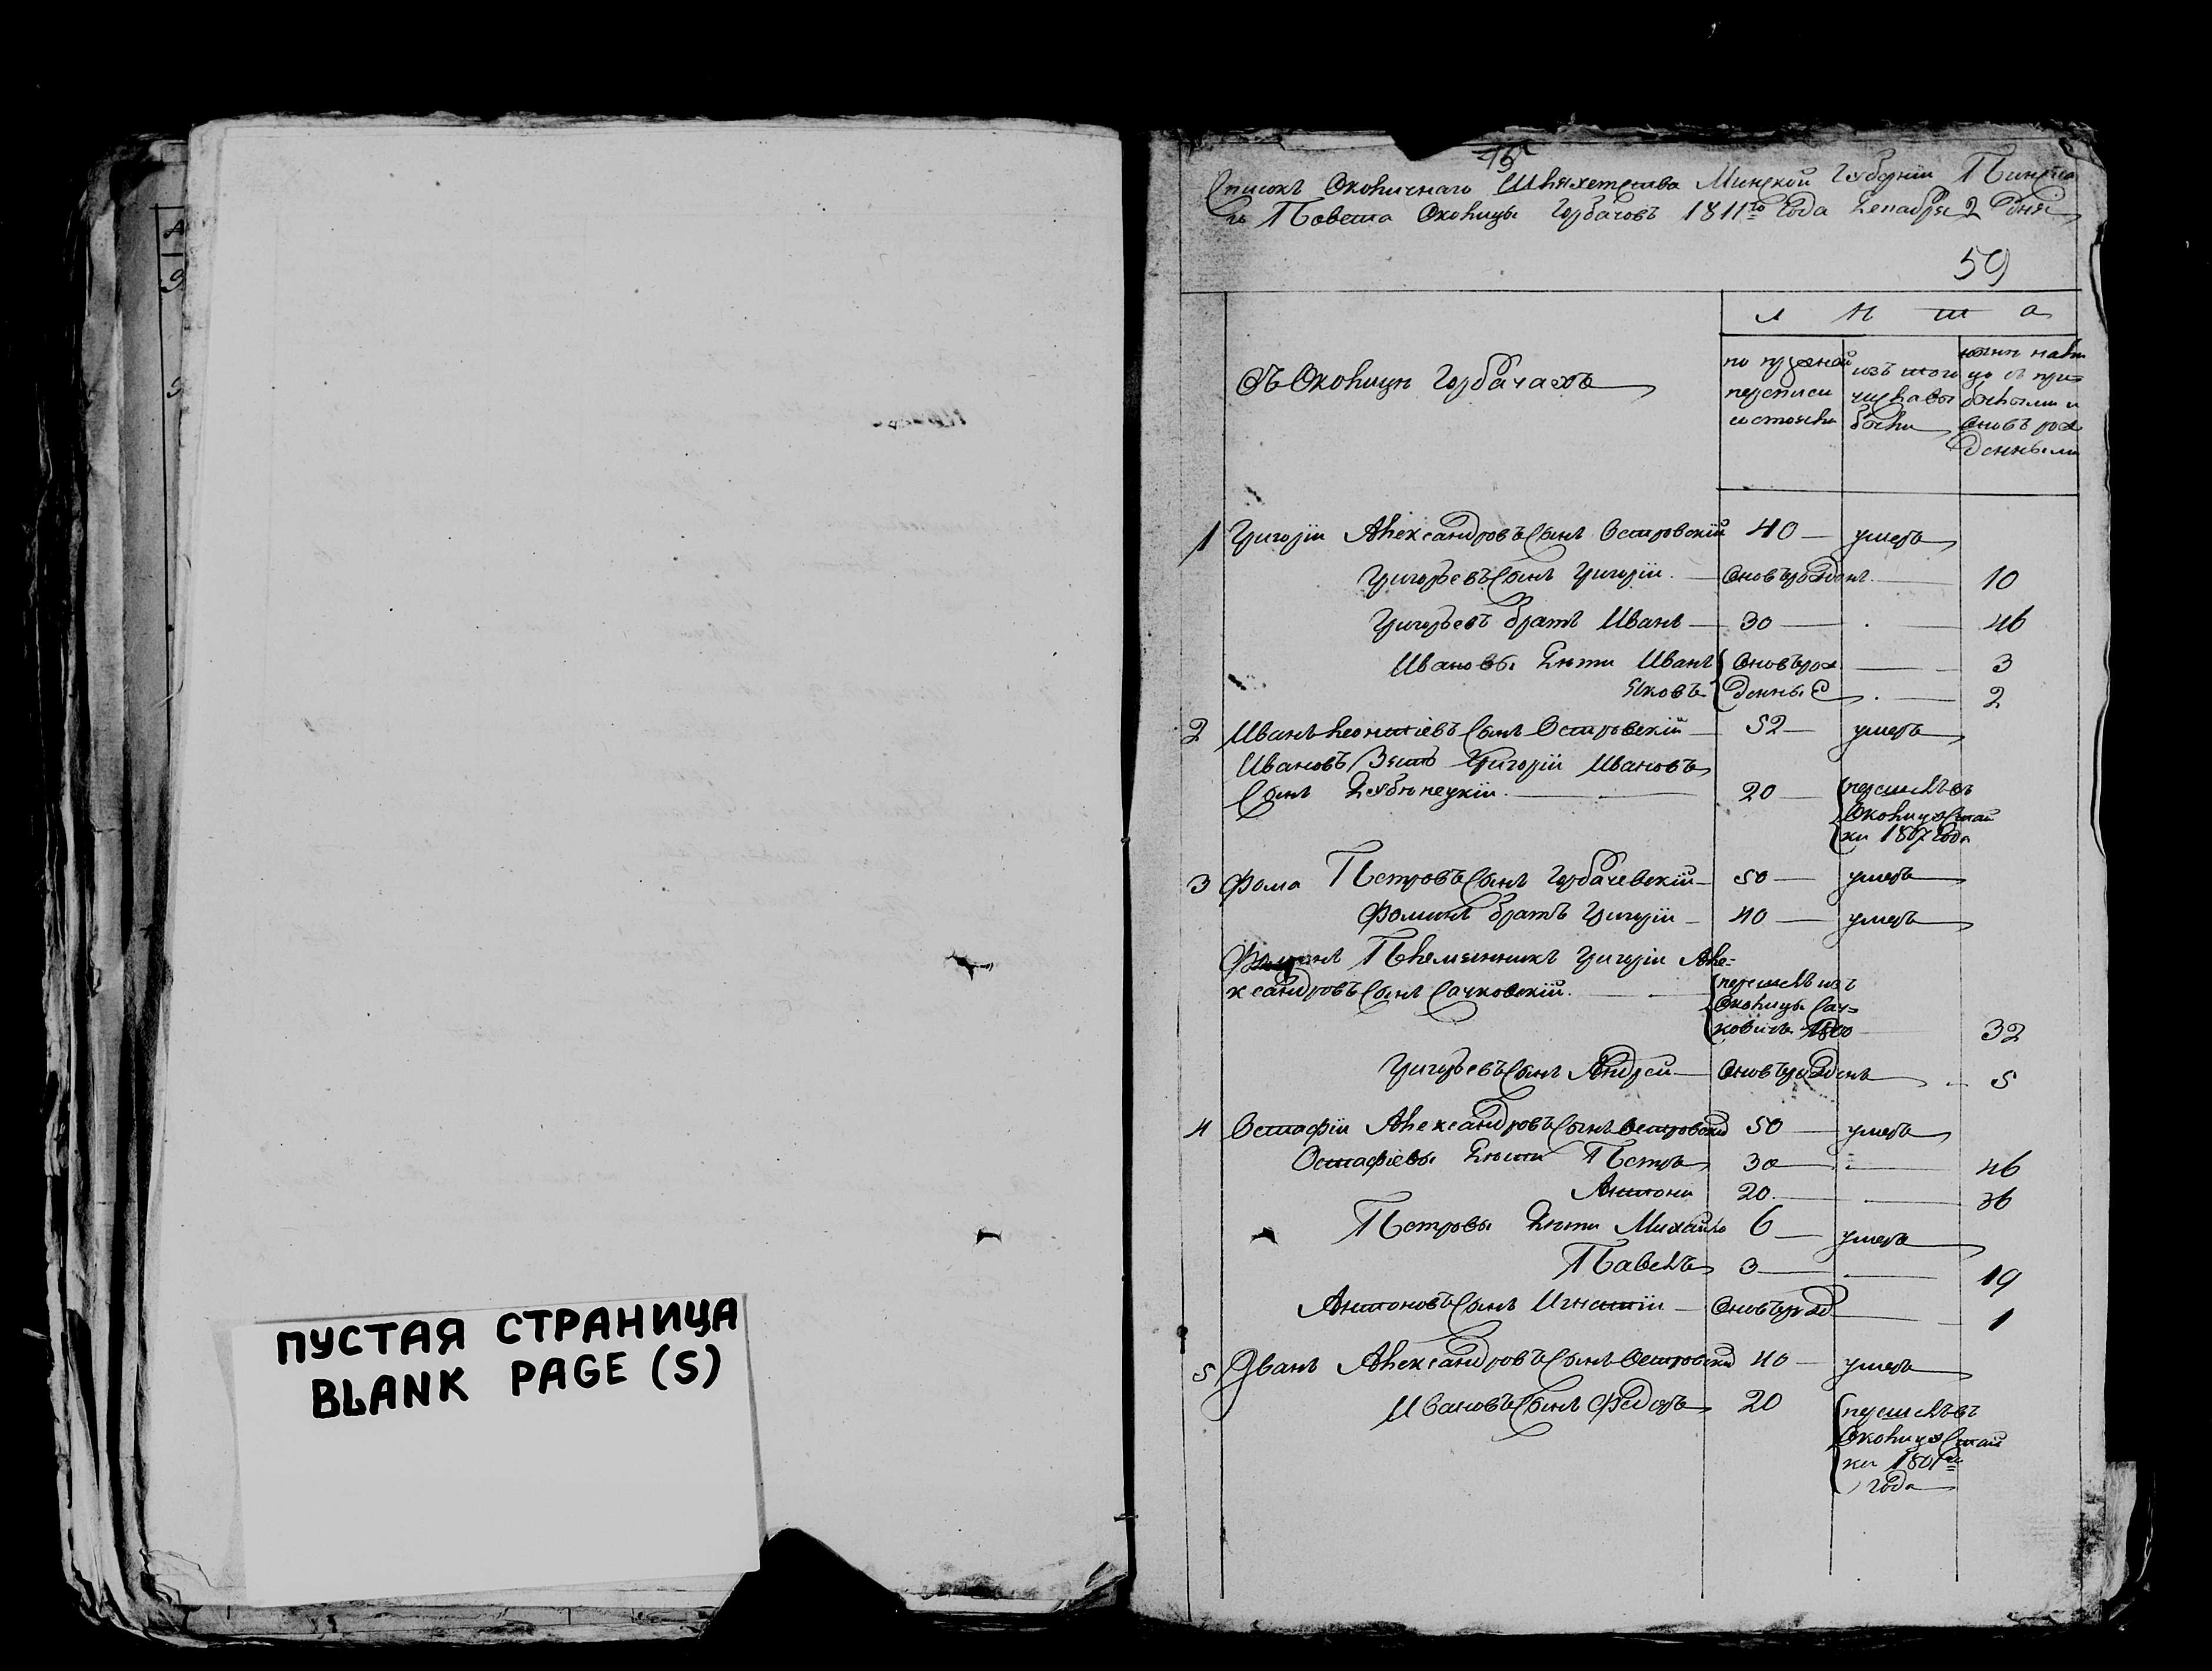 ПУСТАЯ СТРАНИЦА
BLANK PAGE (S)
Списокъ Околичнаго Шляхетства Минской Губерніи Пинска
го Повета Околицы Горбачовъ 1811го Года Декабря 2 Дня
59
Л Ѣ т а
Въ Околицѣ Горбачахъ
по прежней
переписи
состояли
изъ того
числа вы
были
нынѣ на ли
цо съ при=
былыми и
вновь рож
денными
1 Григорій Александровъ Сынъ Островскій 40 — умеръ
Григорьевъ Сынъ Григорій — вновь рожденъ — 10
Григорьевъ братъ Иванъ — 30 — 46
Ивановы дѣти Иванъ вновь рож — 3
Яковъ денные — 2
2 Иванъ Леонтіевъ Сынъ Островскій — 52 — умеръ
Ивановъ Зять Григорій Ивановъ
Сынъ — 20 — перешелъ въ
Околицу Стай
ки 1807 Года
3 Фома Петровъ Сынъ Горбачевскій — 50 — умеръ
Фоминъ братъ Григорій — 40 — умеръ
Фоминъ Племянникъ Григорій Але=
ксандровъ Сынъ Сачковскій — перешелъ изъ
Околицы Сач=
ковичъ — 32
Григорьевъ Сынъ Андрей — вновь рожденъ — 5
4 Остафій Александровъ Сынъ Островскій 50 — умеръ
Остафіевы дѣти Петръ 30 — 46
Антони 20 — 36
Петровы дѣти Михайло 6 — умеръ
Павелъ 3 — 19
Антоновъ Сынъ Игнатій — вновь рожд — 1
5 Иванъ Александровъ Сынъ Островскій 40 — умеръ
Ивановъ Сынъ Федоръ 20 перешелъ въ
Околицу Стай
ки 1801го
Года